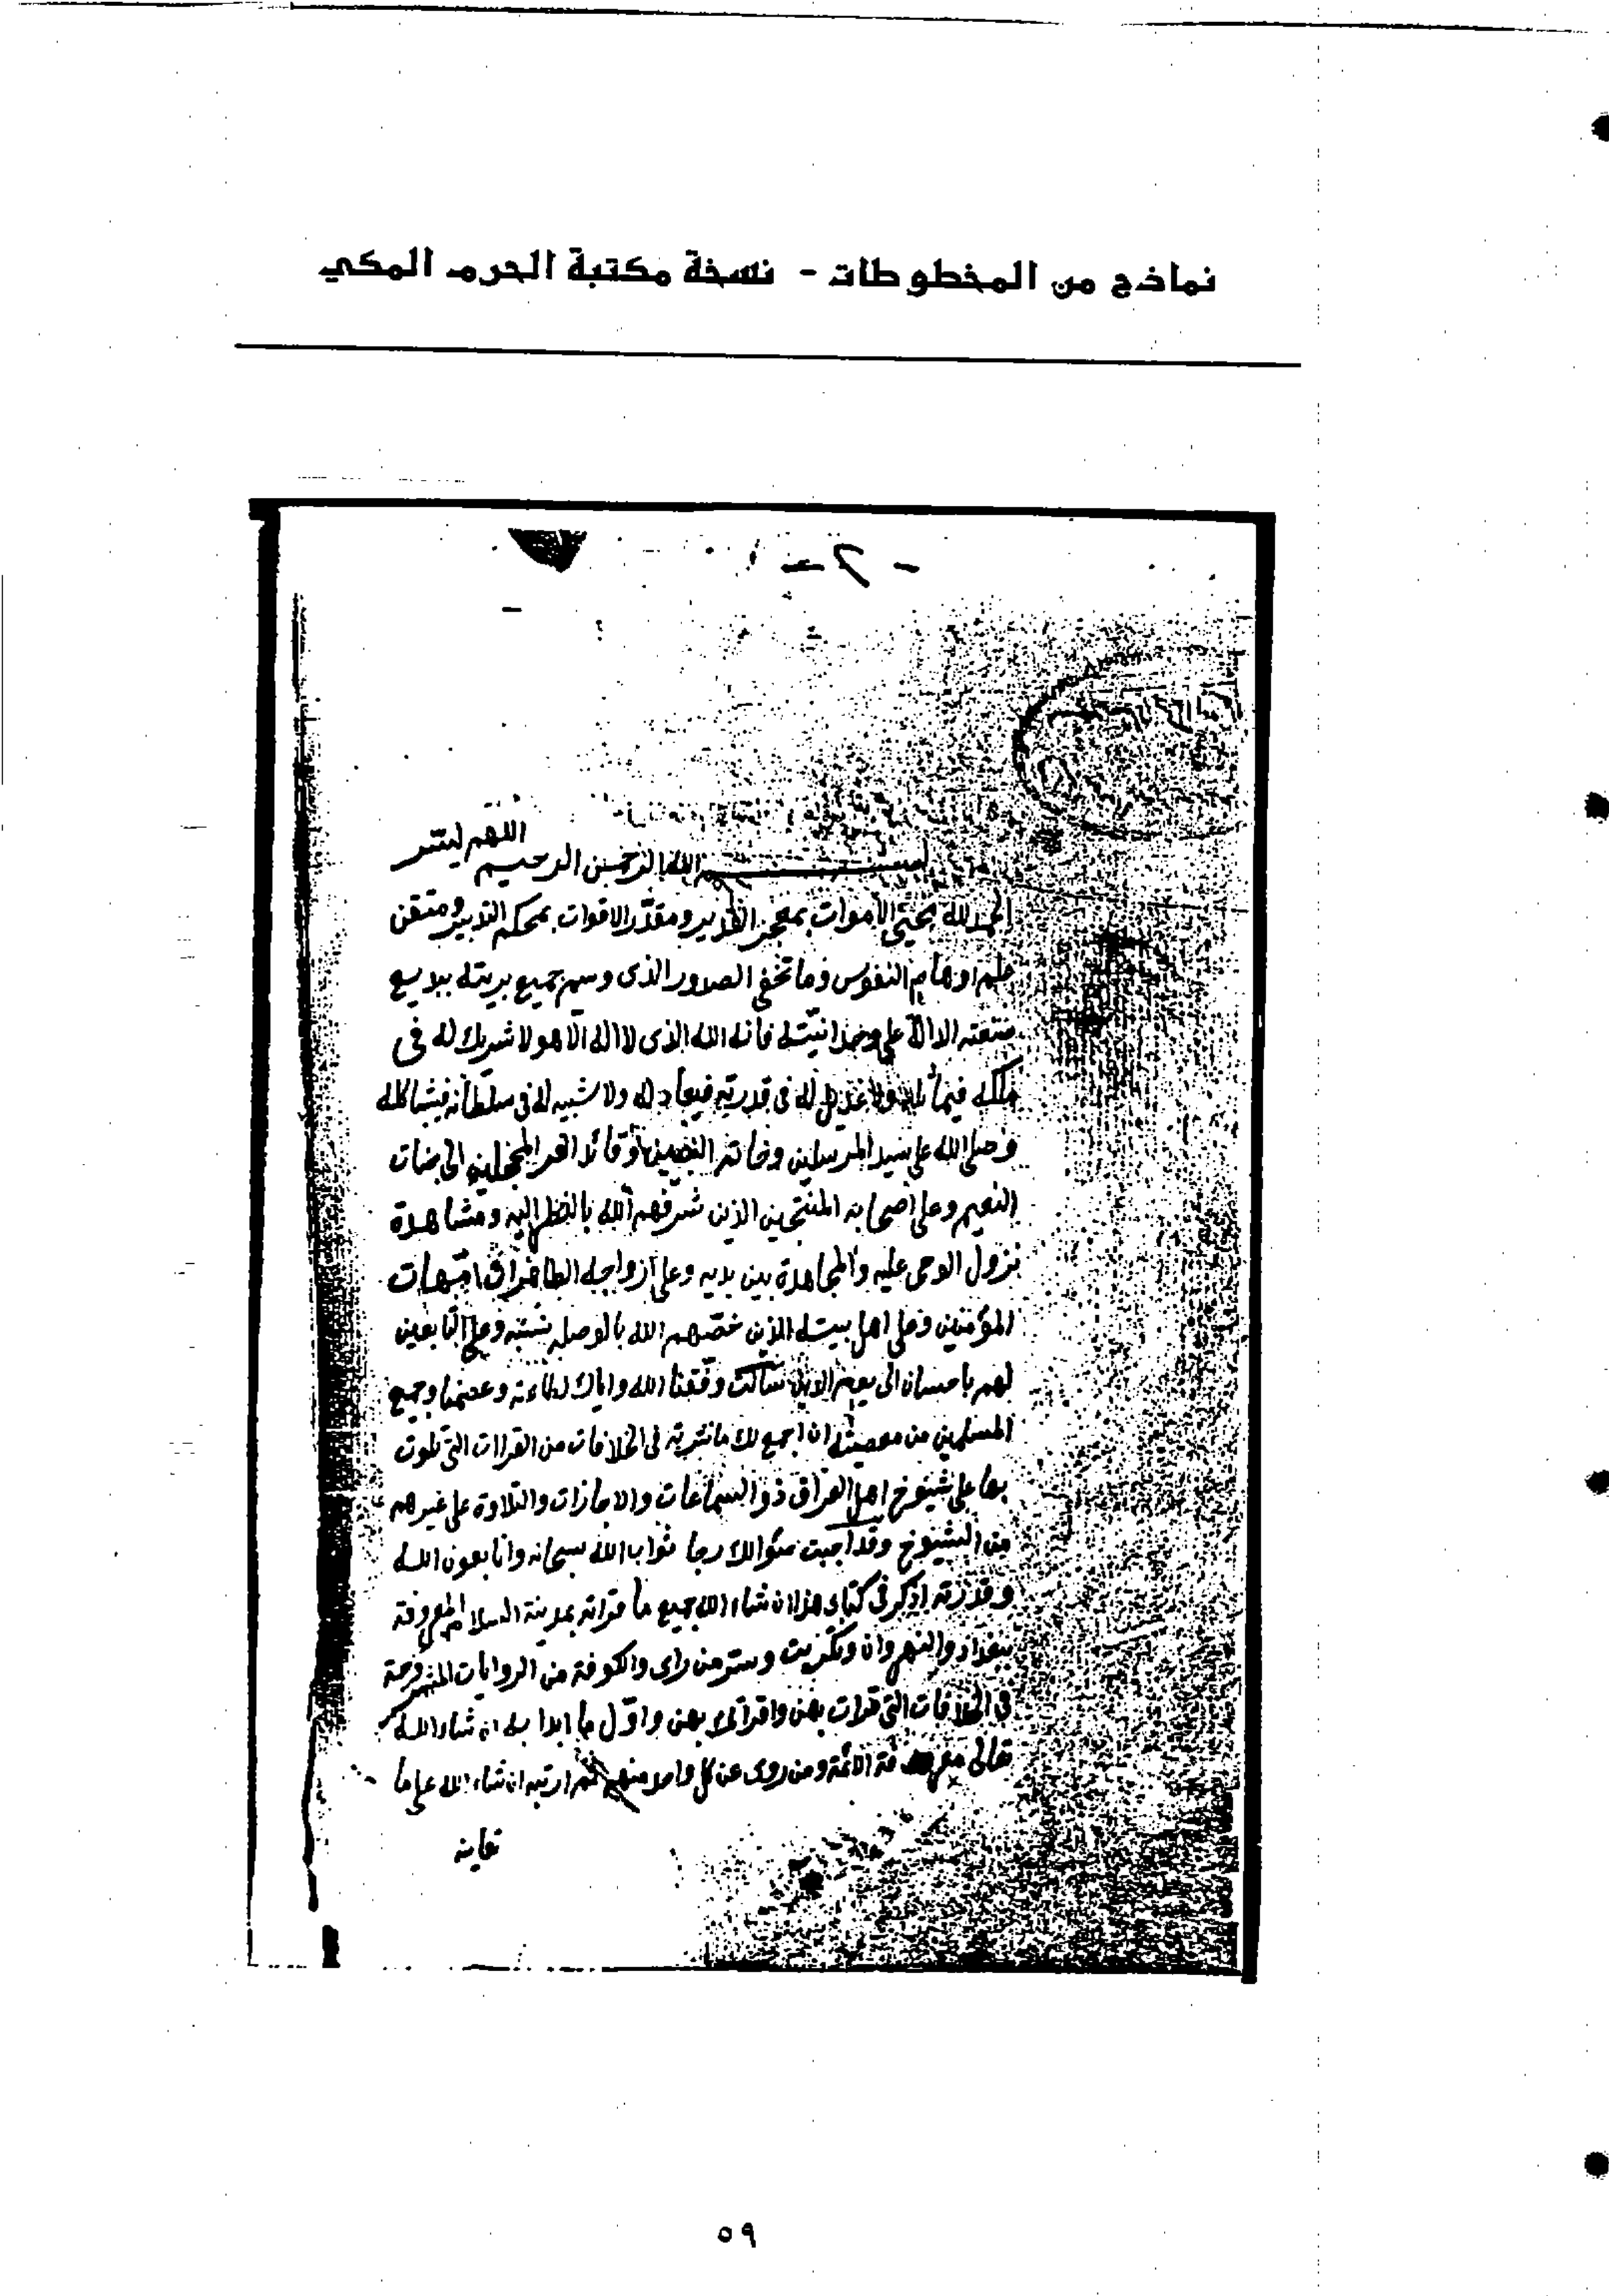 نماذج من المخطوطات - نسخة مكتبة الحرم المكي
- ٢ -
اللهم يسر
بسم الله الرحمن الرحيم
الحمد لله محيى الأموات بمعجز التقدير ومقدر الاقوات بمحكم التدبير ومتقن
اوهام النفوس وما تخفى الصدور الذى وسم جميع بريته ببديع
صنعته الدالة على وحدانيته فانه الله الذى لا اله الا هو لا شريك له فى
ملكه ولا عديل له فى قدرته فيعادله ولا شبيه له فى سلطانه فيشاكله
وصلى الله على سيد المرسلين وخاتم النبيين وقائد الغر المحجلين الى جنات
النعيم وعلى اصحابه المنتخبين الذين شرفهم الله بالنظر اليه ومشاهدة
نزول الوحى عليه والمجاهدة بين يديه وعلى ازواجه الطاهرات امهات
المؤمنين وعلى اهل بيته الذين خصهم الله بالوصلة بنسبه وعلى التابعين
لهم باحسان الى يوم الدين سألت وفقنا الله واياك لطاعته وعصمنا وجميع
المسلمين من معصيته ان اجمع لك ما فى الخلافات من القراات التى تلوت
بها على شيوخ اهل العراق ذو السماعات والاجازات والتلاوة على غيرهم
من الشيوخ وقد اجبت سؤالك رجا ثواب الله سبحانه وانا بعون الله
وقدرته اذكر فى كتابى هذا ان شاء الله جميع ما قرأته بمدينة السلام المعروفة
ببغداد والنهروان وتكريت وسر من راى والكوفة من الروايات
فى الخلافات التى قرات بهن واقرانى بهن واول ما ابدا به ان شاء الله
تعالى معرفة الائمة ومن روى عن كل واحد منهم ثم ارتبه ان شاء الله على ما
٥٩